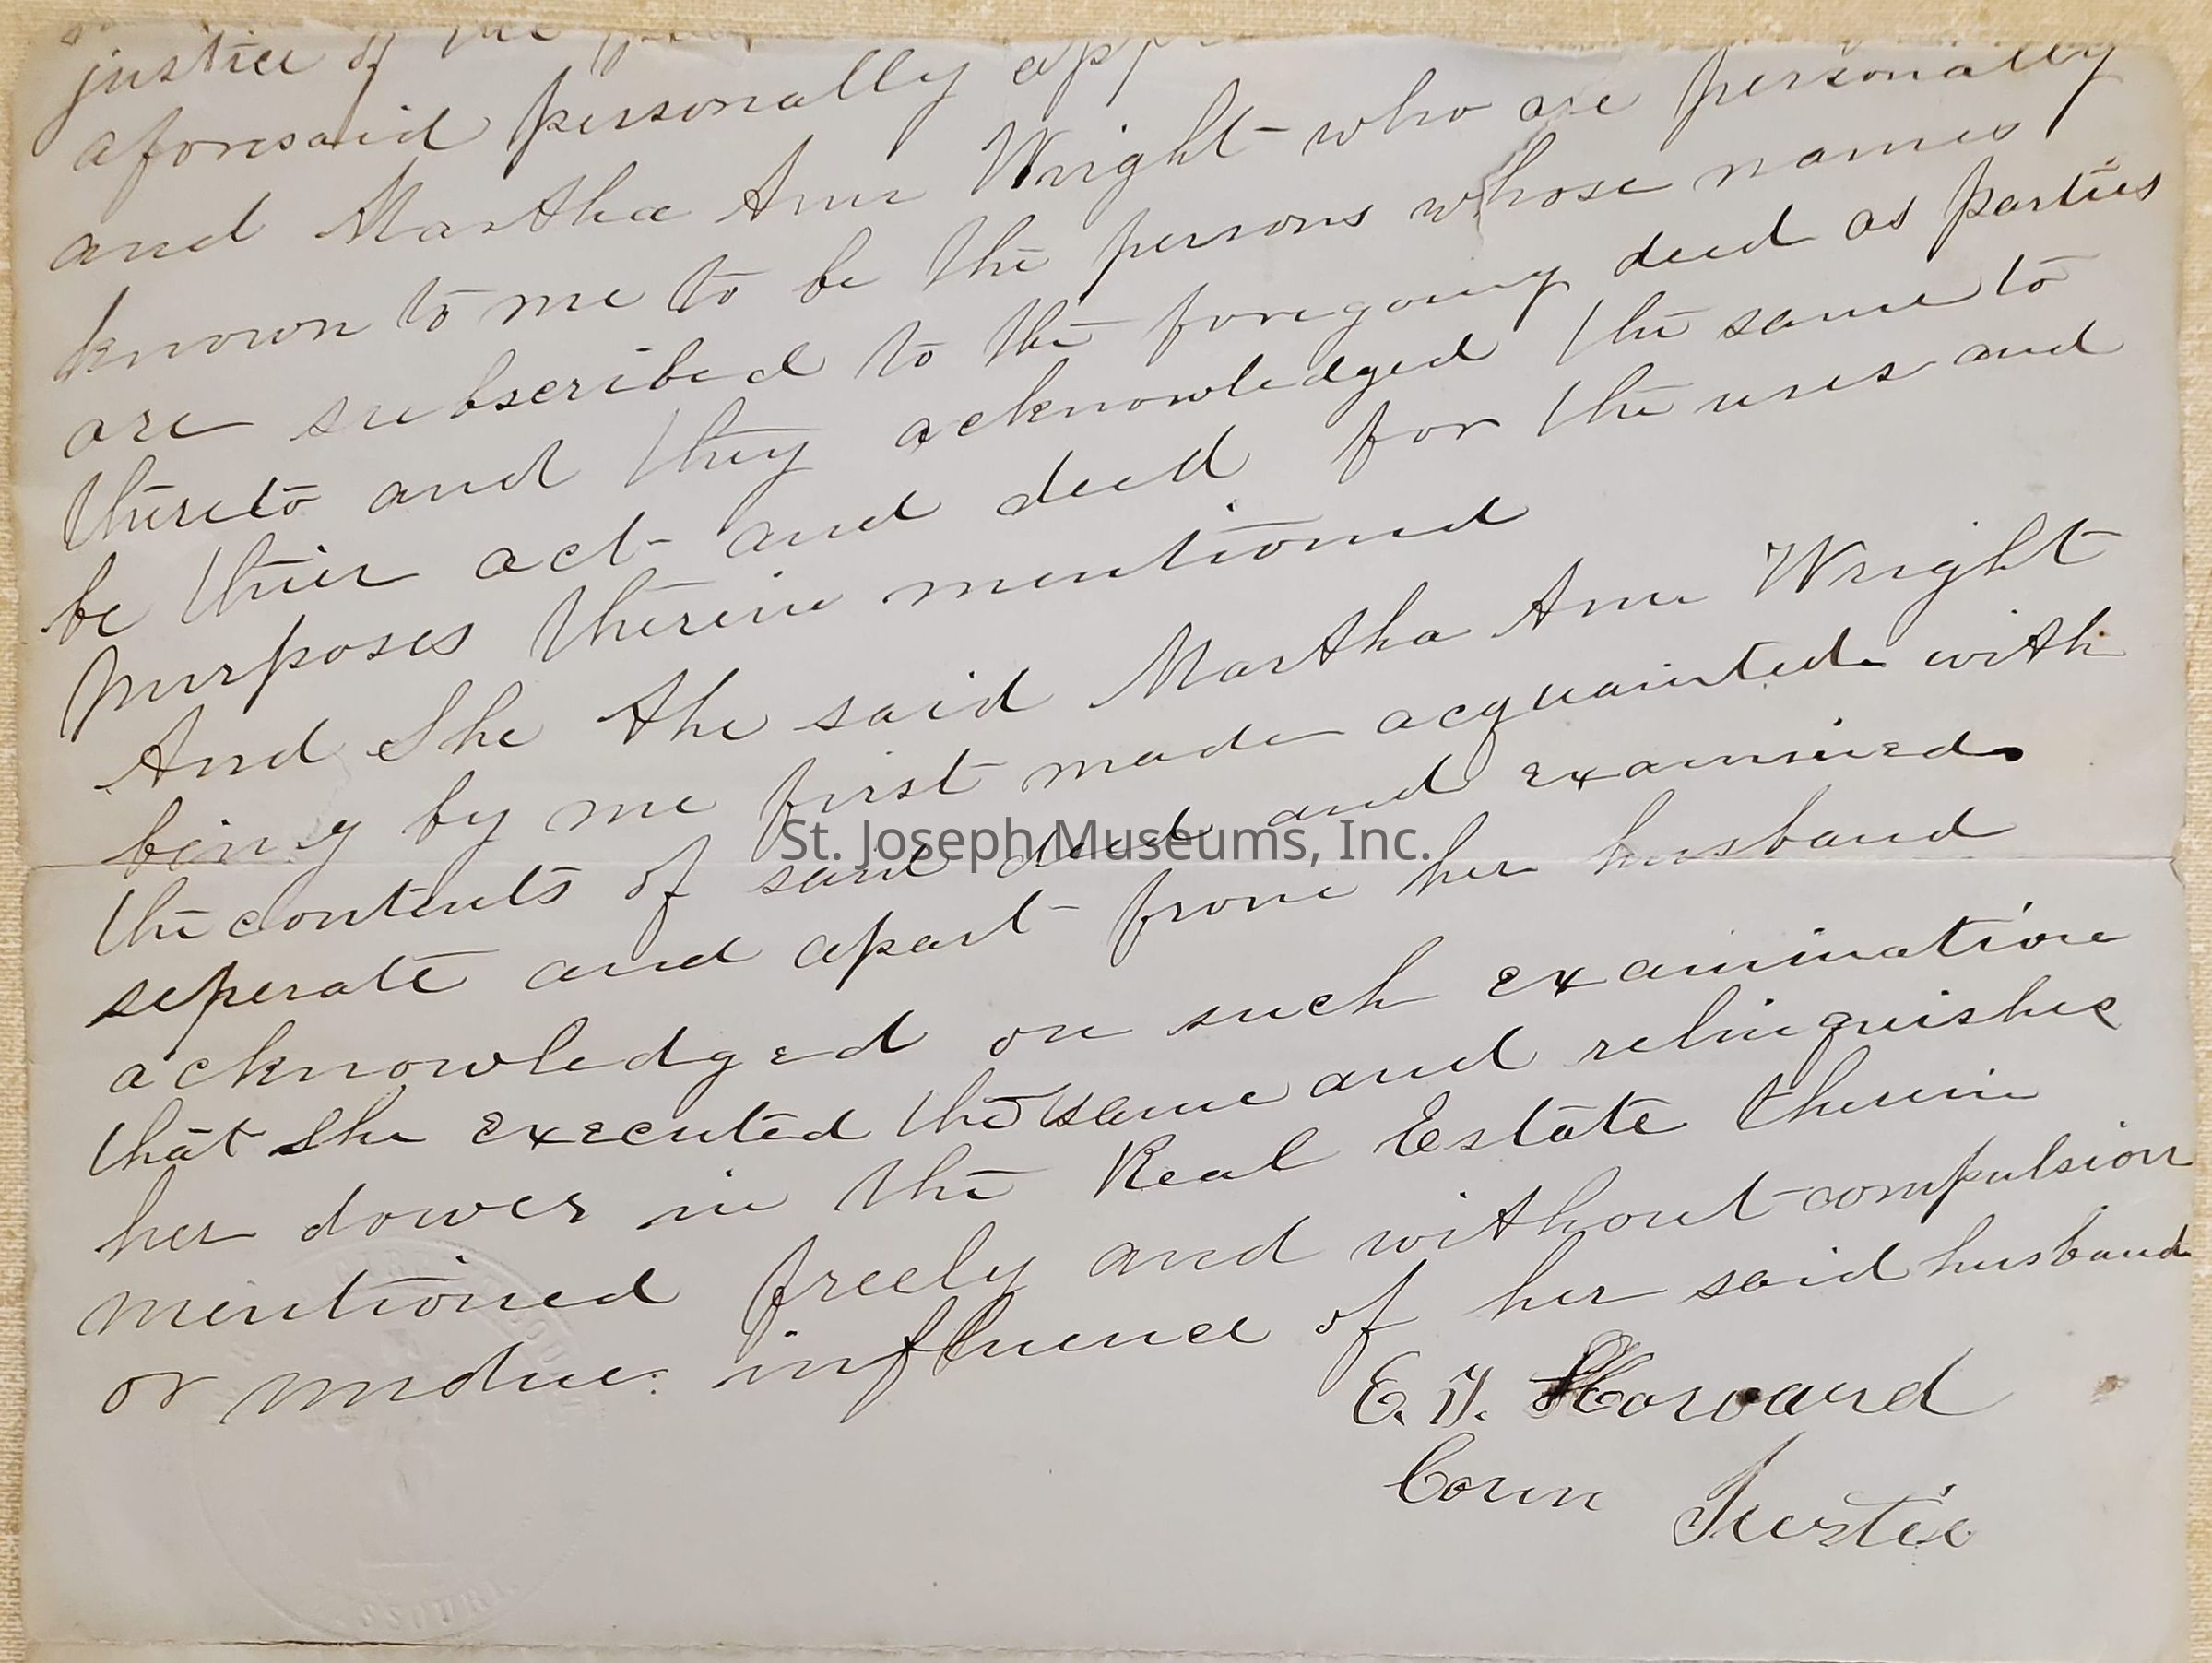 justice of the
aforesaid personally
and Martha Ann Wright who are personally
known to me to be the persons whose names
are subscribed to the foregoing deed as parties
thereto and they acknowledged the same to
be thier act and deed for the uses and
purposes therein mentioned
And She the said Martha Ann Wright
being by me first made acquainted with
the contents of said deed and examined
St. Joseph Museums, Inc.
seperate and apart from her husband
acknowledged on such examination
that she executed the same and relinquishes
her dower in the Real Estate therein
mentioned freely and without compulsion
or undue influence of her said husband
E. Howard
Justice